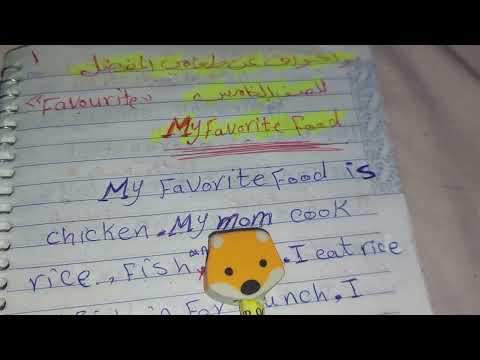 1
عن طعامي المفضل
«Favourite» الصف الخامس
My Favorite Food
My Favorite Food is
chicken. My mom cook
rice., Fish an . I eat rice
in For unch. I